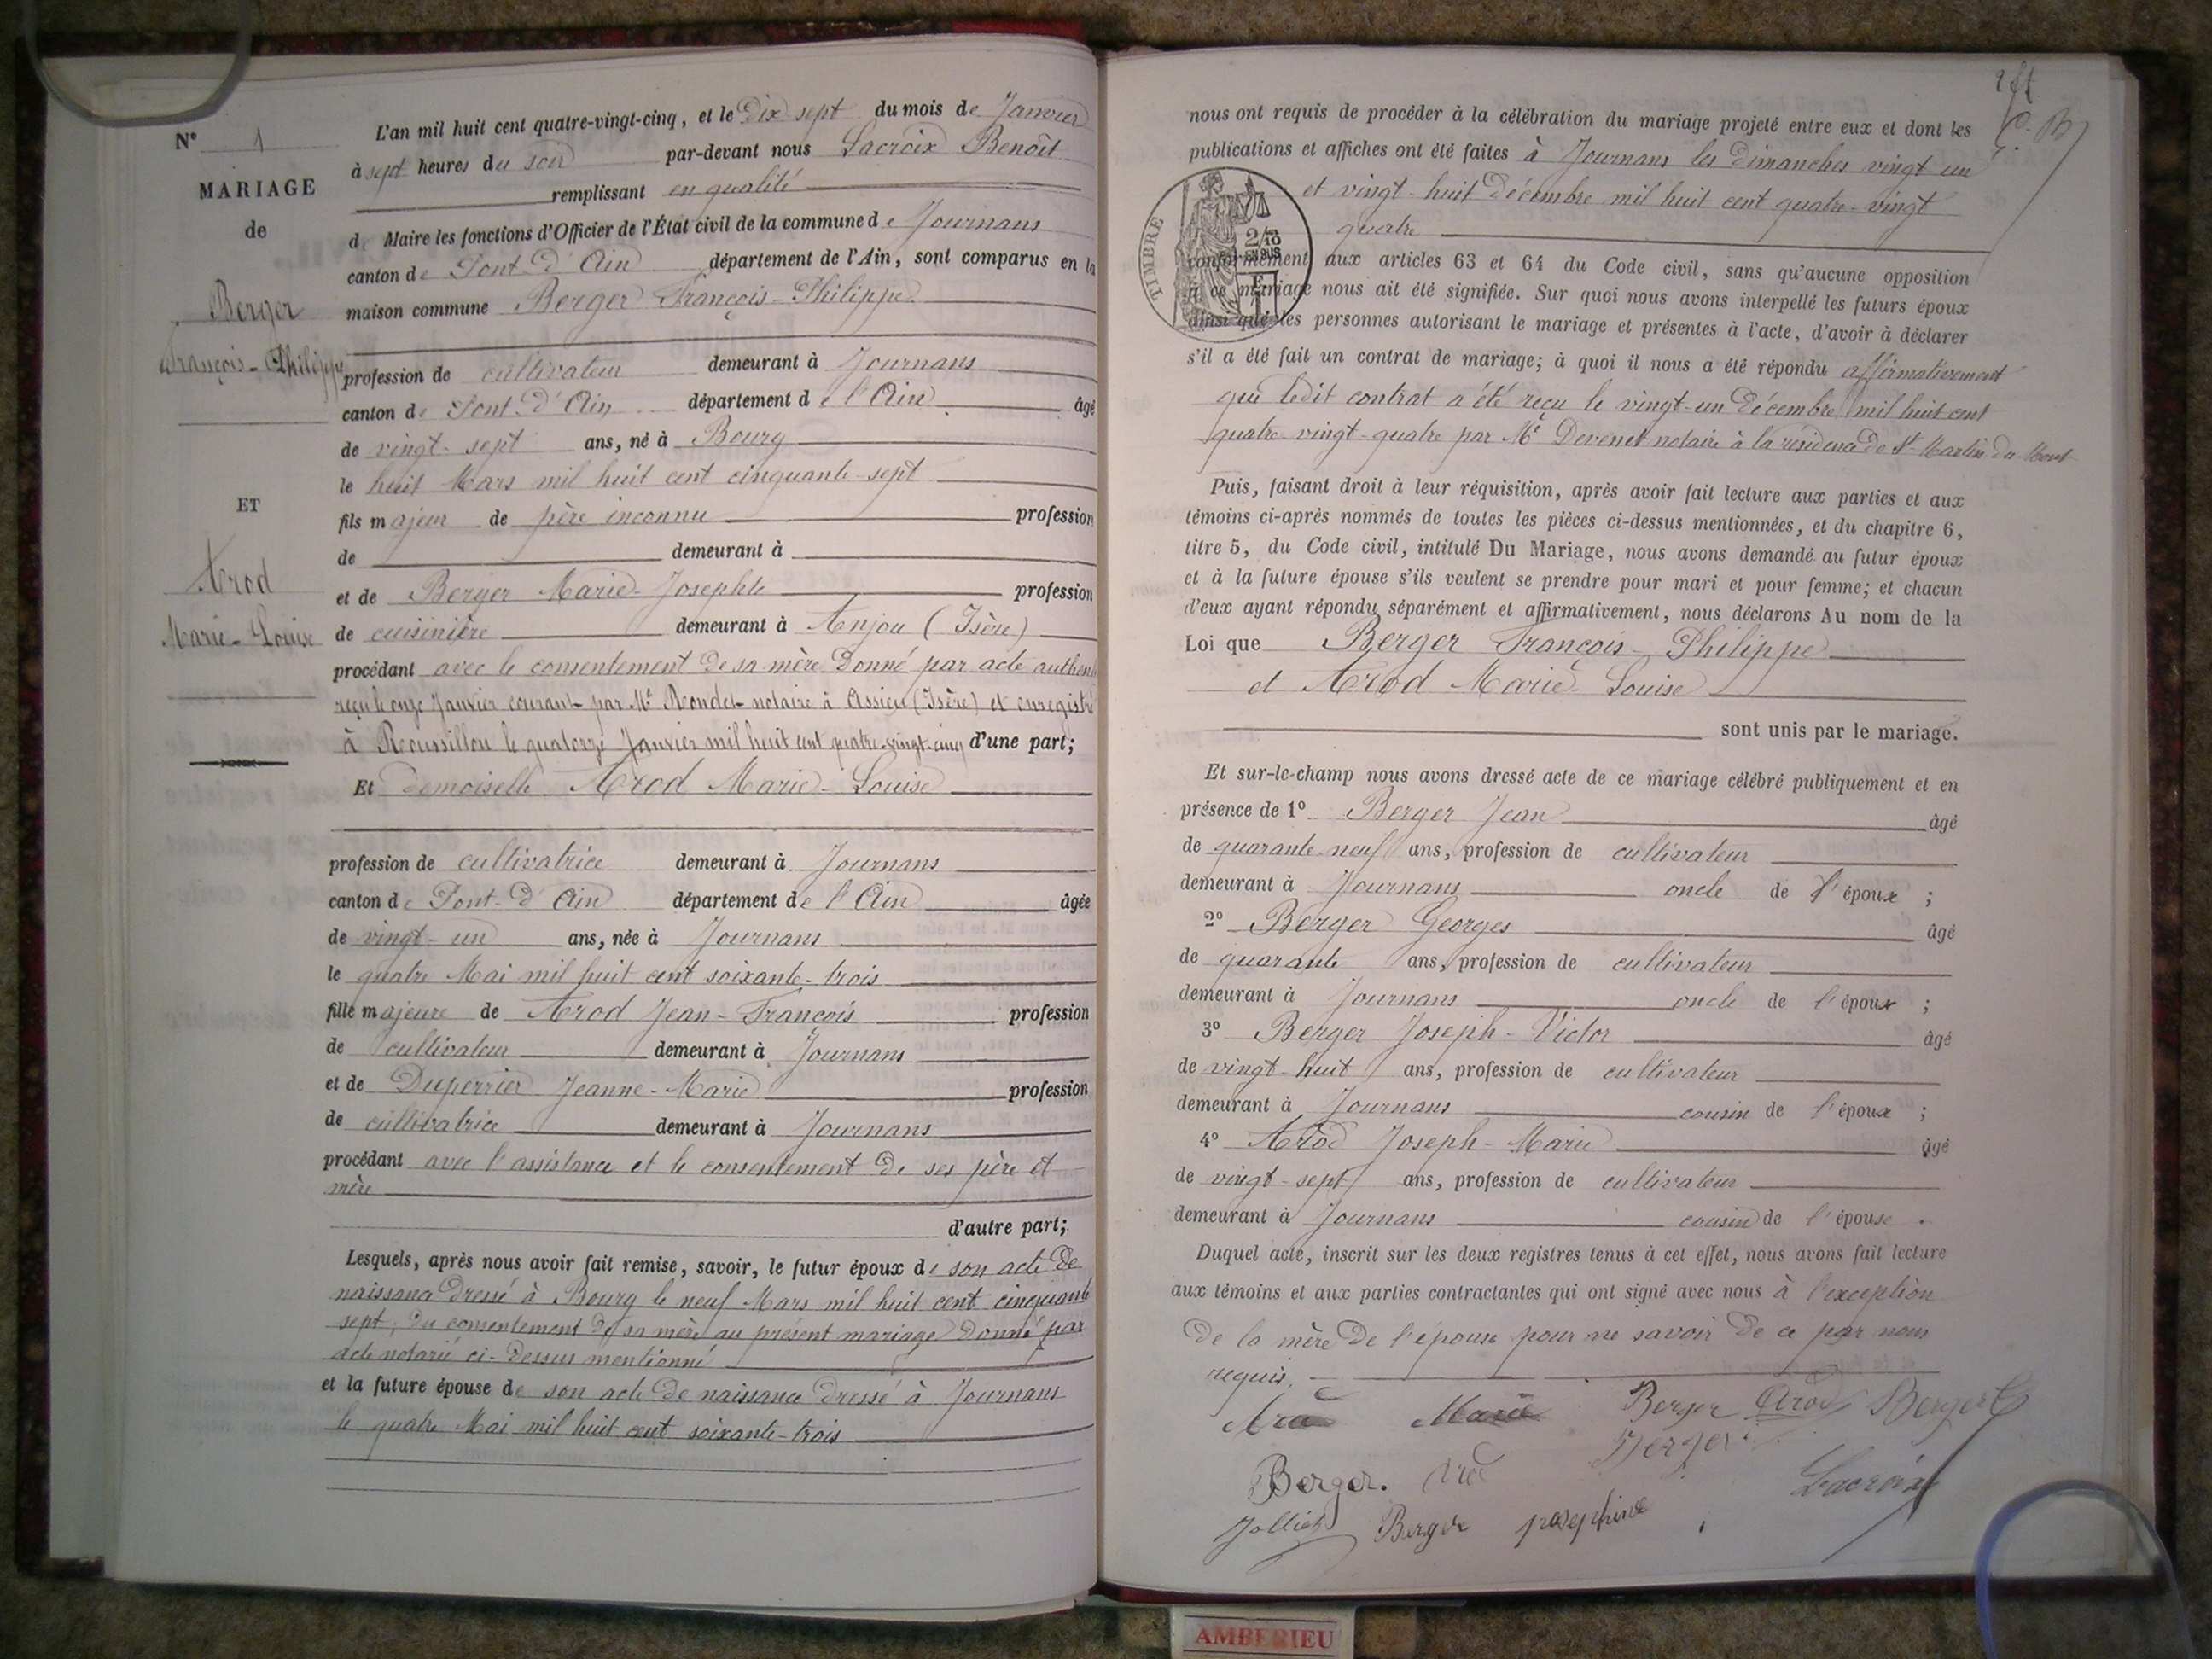 N° 1
MARIAGE
de
Berger
François-Philippe
ET
Arod
Marie-Louise
L'an mil huit cent quatre-vingt-cinq, et le Dix sept du mois de Janvier
à sept heures du soir par-devant nous Lacroix Benoît
remplissant en qualité
de Maire les fonctions d'Officier de l'État civil de la commune de Journans
canton de Pont-d'Ain département de l'Ain, sont comparus en la
maison commune Berger François-Philippe
profession de cultivateur demeurant à Journans
canton de Pont-d'Ain département de l'Ain âgé
de vingt-sept ans, né à Bourg
le huit Mars mil huit cent cinquante-sept
fils majeur de père inconnu profession
de demeurant à
et de Berger Marie-Josephte profession
de cuisinière demeurant à Anjou (Isère)
procédant avec le consentement de sa mère donné par acte authen
reçu le onze Janvier courant par Me Rondet notaire à Assieu (Isère) et enregistré
à Roussillon le quatorze Janvier mil huit cent quatre-vingt-cinq d'une part;
Et demoiselle Arod Marie-Louise
profession de cultivatrice demeurant à Journans
canton de Pont-d'Ain département de l'Ain âgée
de vingt-un ans, née à Journans
le quatre Mai mil huit cent soixante-trois
fille majeure de Arod Jean-François profession
de cultivateur demeurant à Journans
et de Duperrier Jeanne-Marie profession
de cultivatrice demeurant à Journans
procédant avec l'assistance et le consentement de ses père et
mère
d'autre part;
Lesquels, après nous avoir fait remise, savoir, le futur époux de son acte de
naissance dressé à Bourg le neuf Mars mil huit cent cinquante
sept, du consentement de sa mère au présent mariage donné par
acte notarié ci-dessus mentionné
et la future épouse de son acte de naissance dressé à Journans
le quatre Mai mil huit cent soixante-trois
nous ont requis de procéder à la célébration du mariage projeté entre eux et dont les
publications et affiches ont été faites à Journans les dimanches vingt un
et vingt-huit décembre mil huit cent quatre-vingt
quatre
TIMBRE
2/10 EN SUS
conformément aux articles 63 et 64 du Code civil, sans qu'aucune opposition
à ce mariage nous ait été signifiée. Sur quoi nous avons interpellé les futurs époux
ainsi que les personnes autorisant le mariage et présentes à l'acte, d'avoir à déclarer
s'il a été fait un contrat de mariage; à quoi il nous a été répondu affirmativement
que ledit contrat a été reçu le vingt-un décembre mil huit cent
quatre-vingt-quatre par Me Devenet notaire à la résidence de St Martin du Mont
Puis, faisant droit à leur réquisition, après avoir fait lecture aux parties et aux
témoins ci-après nommés de toutes les pièces ci-dessus mentionnées, et du chapitre 6,
titre 5, du Code civil, intitulé Du Mariage, nous avons demandé au futur époux
et à la future épouse s'ils veulent se prendre pour mari et pour femme; et chacun
d'eux ayant répondu séparément et affirmativement, nous déclarons Au nom de la
Loi que Berger François-Philippe
et Arod Marie-Louise
sont unis par le mariage.
Et sur-le-champ nous avons dressé acte de ce mariage célébré publiquement et en
présence de 1° Berger Jean âgé
de quarante-neuf ans, profession de cultivateur
demeurant à Journans oncle de l'époux ;
2° Berger Georges âgé
de quarante ans, profession de cultivateur
demeurant à Journans oncle de l'époux ;
3° Berger Joseph-Victor âgé
de vingt-huit ans, profession de cultivateur
demeurant à Journans cousin de l'époux ;
4° Arod Joseph-Marie âgé
de vingt-sept ans, profession de cultivateur
demeurant à Journans cousin de l'épouse .
Duquel acte, inscrit sur les deux registres tenus à cet effet, nous avons fait lecture
aux témoins et aux parties contractantes qui ont signé avec nous à l'exception
de la mère de l'épouse pour ne savoir de ce par nous
requis.
Marie Berger Arod Berger
Berger
Berger. Lacroix
Jolliet Berger josephine
AMBERIEU